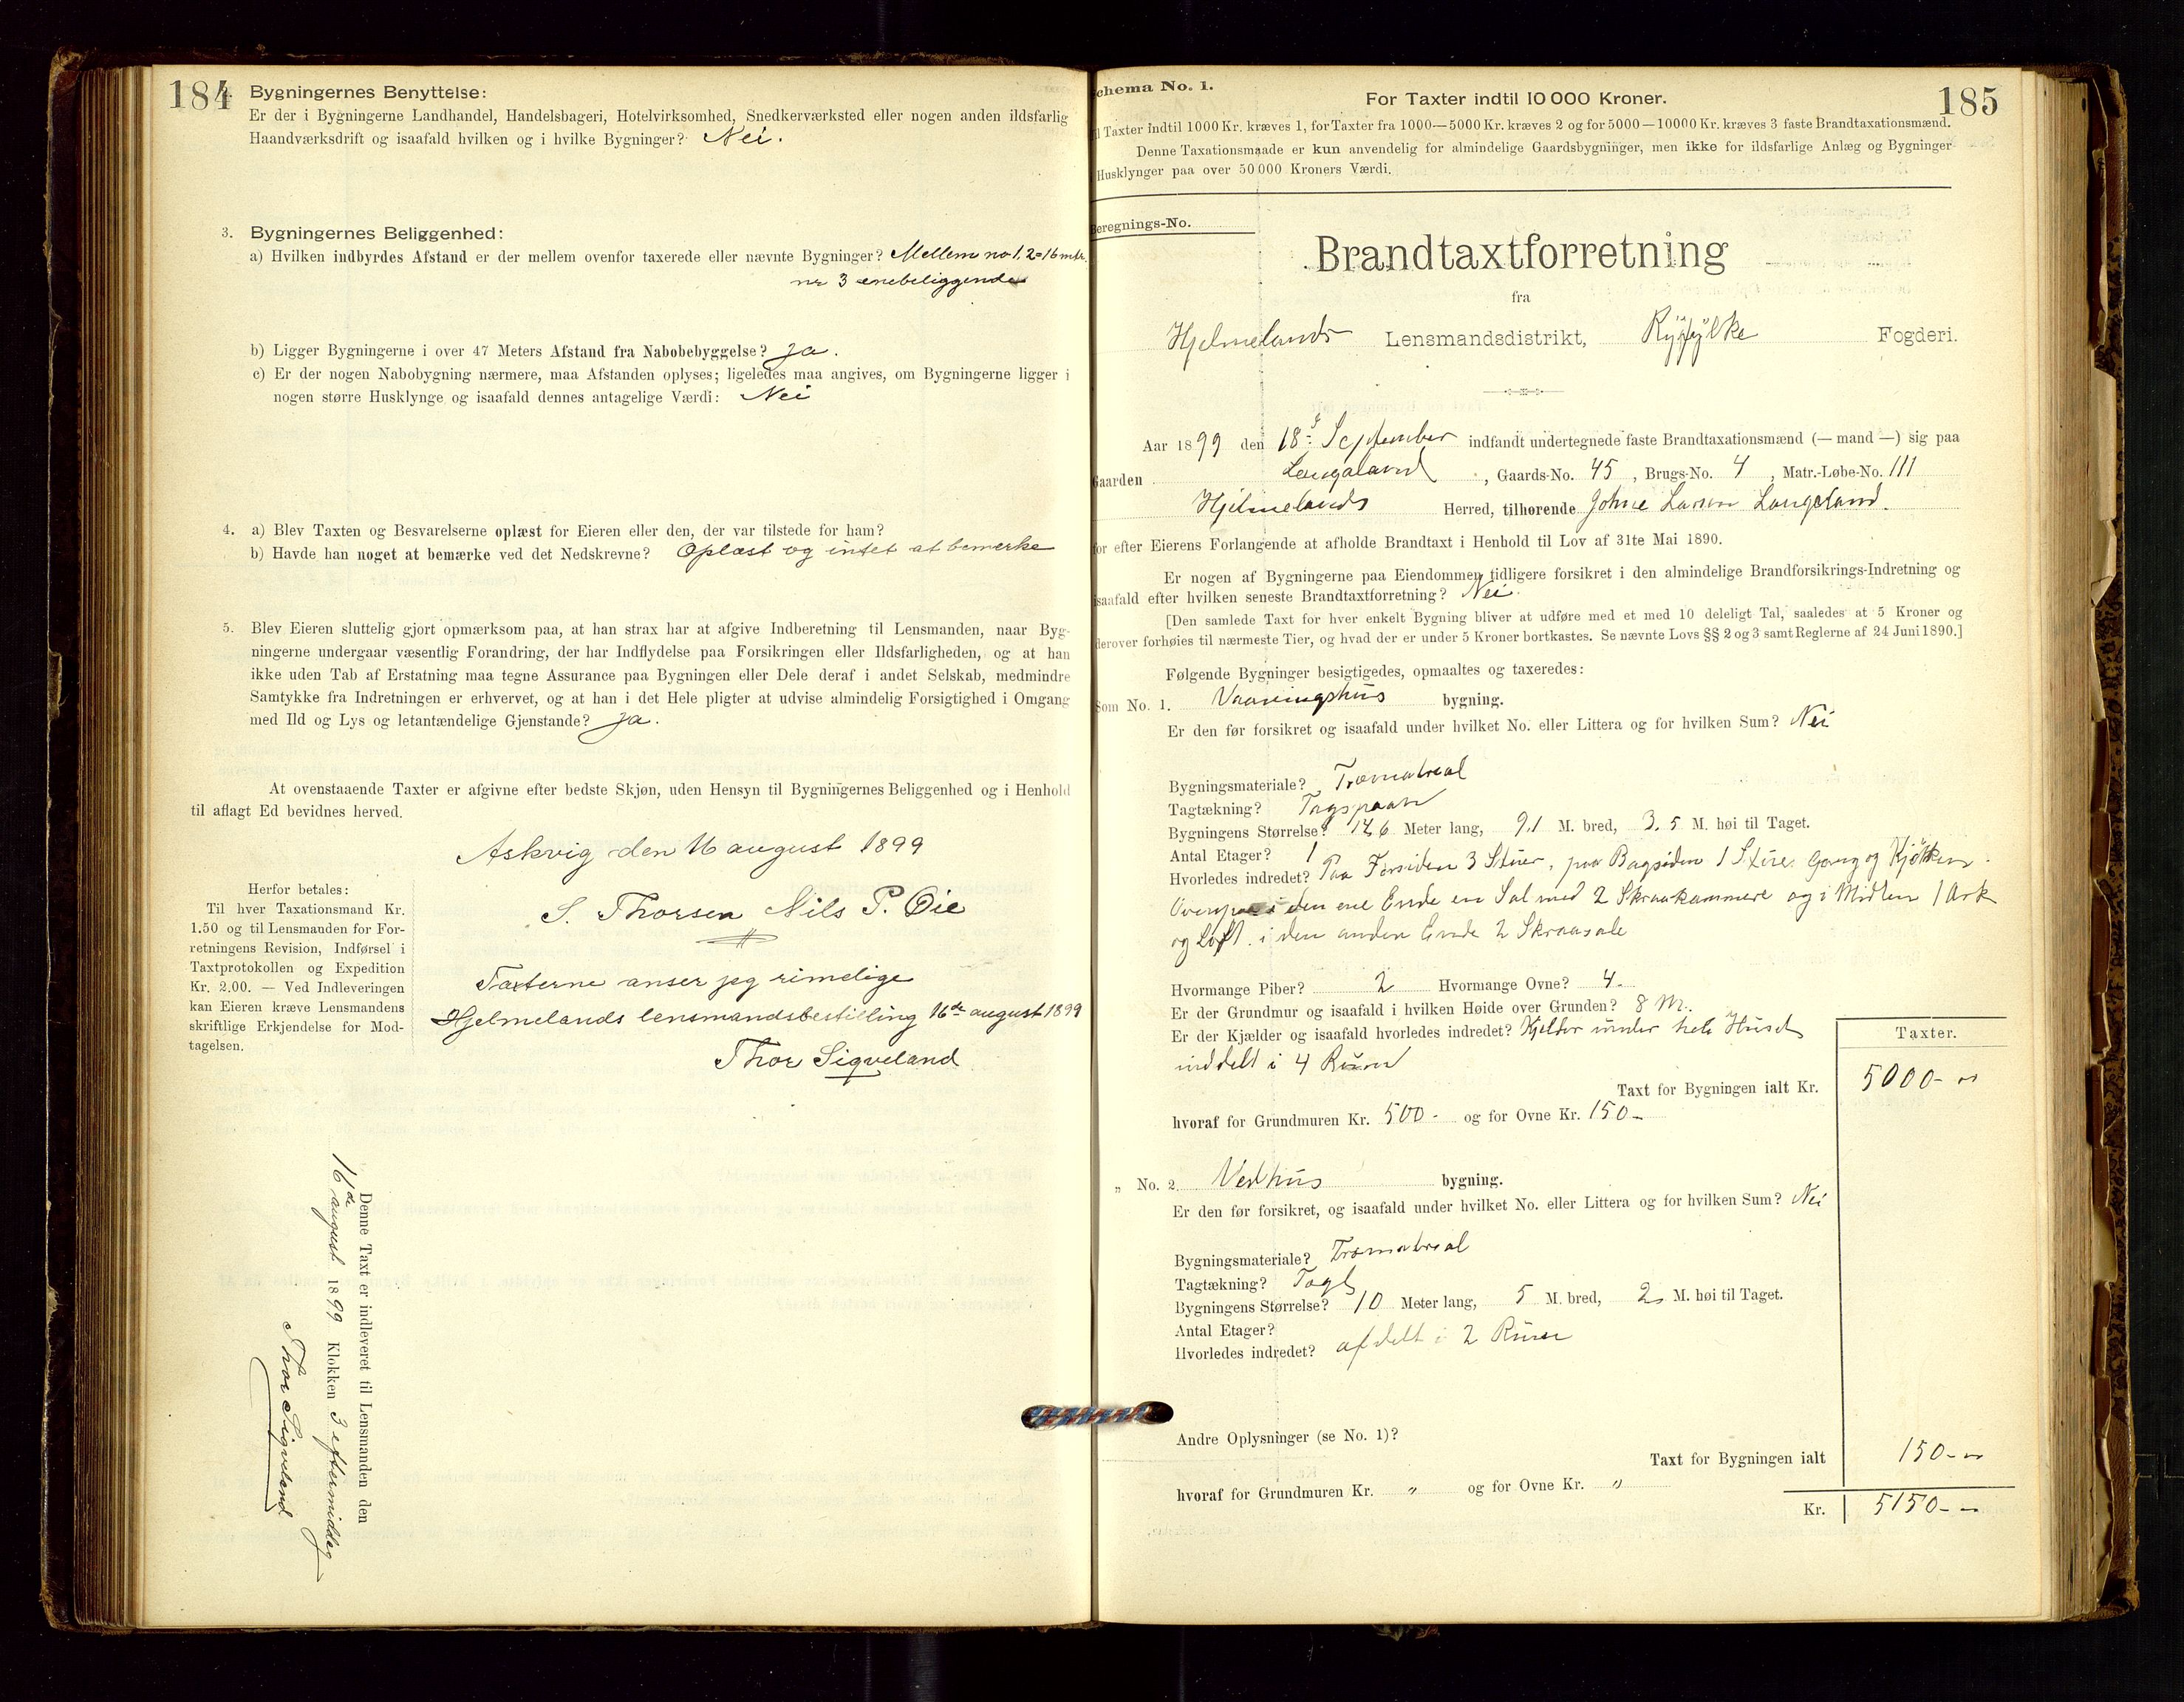 184
Bygningernes Benyttelse:
Er der i Bygningerne Landhandel, Handelsbageri, Hotelvirksomhed, Snedkerværksted eller nogen anden ildsfarlig
Haandværksdrift og isaafald hvilken og i hvilke Bygninger? Nei.
3. Bygningernes Beliggenhed:
a) Hvilken indbyrdes Afstand er der mellem ovenfor taxerede eller nævnte Bygninger? Mellem no 1, 2 = 16 mtr.
nr 3 enebeliggende
b) Ligger Bygningerne i over 47 Meters Afstand fra Nabobebyggelse? ja.
c) Er der nogen Nabobygning nærmere, maa Afstanden oplyses; ligeledes maa angives, om Bygningerne ligger i
nogen større Husklynge og isaafald dennes antagelige Værdi: Nei
4. a) Blev Taxten og Besvarelserne oplæst for Eieren eller den, der var tilstede for ham?
b) Havde han noget at bemærke ved det Nedskrevne? Oplæst og intet at bemerke
5. Blev Eieren sluttelig gjort opmærksom paa, at han strax har at afgive Indberetning til Lensmanden, naar Byg-
ningerne undergaar væsentlig Forandring, der har Indflydelse paa Forsikringen eller Ildsfarligheden, og at han
ikke uden Tab af Erstatning maa tegne Assurance paa Bygningen eller Dele deraf i andet Selskab, medmindre
Samtykke fra Indretningen er erhvervet, og at han i det Hele pligter at udvise almindelig Forsigtighed i Omgang
med Ild og Lys og letantændelige Gjenstande? ja.
At ovenstaaende Taxter er afgivne efter bedste Skjøn, uden Hensyn til Bygningernes Beliggenhed og i Henhold
til aflagt Ed bevidnes herved.
Askvig den 16 august 1899
S. Thorsen Nils P. Øie
Taxterne anser jeg rimelige
Hjelmelands lensmandsbestilling 16de august 1899
Thor Sigveland
Herfor betales:
Til hver Taxationsmand Kr.
1.50 og til Lensmanden for For-
retningens Revision, Indførsel i
Taxtprotokollen og Expedition
Kr. 2.00. — Ved Indleveringen
kan Eieren kræve Lensmandens
skriftlige Erkjendelse for Mod-
tagelsen.
Denne Taxt er indleveret til Lensmanden den
16de august 1899 Klokken 3 eftermiddag
Thor Sigveland
185
chema No. 1.
For Taxter indtil 10 000 Kroner.
l Taxter indtil 1000 Kr. kræves 1, for Taxter fra 1000—5000 Kr. kræves 2 og for 5000—10000 Kr. kræves 3 faste Brandtaxationsmænd.
Denne Taxationsmaade er kun anvendelig for almindelige Gaardsbygninger, men ikke for ildsfarlige Anlæg og Bygninger
Husklynger paa over 50 000 Kroners Værdi.
Beregnings-No.
Brandtaxtforretning
fra
Hjelmelands Lensmandsdistrikt, Ryfylke Fogderi.
Aar 1899 den 18: September indfandt undertegnede faste Brandtaxationsmænd (— mand —) sig paa
Gaarden Langaland, Gaards-No. 45, Brugs-No. 4, Matr.-Løbe-No. 111
Hjelmelands Herred, tilhørende Johne Larsen Langeland.
for efter Eierens Forlangende at afholde Brandtaxt i Henhold til Lov af 31te Mai 1890.
Er nogen af Bygningerne paa Eiendommen tidligere forsikret i den almindelige Brandforsikrings-Indretning og
isaafald efter hvilken seneste Brandtaxtforretning? Nei.
[Den samlede Taxt for hver enkelt Bygning bliver at udføre med et med 10 deleligt Tal, saaledes at 5 Kroner og
derover forhøies til nærmeste Tier, og hvad der er under 5 Kroner bortkastes. Se nævnte Lovs §§ 2 og 3 samt Reglerne af 24 Juni 1890.]
Følgende Bygninger besigtigedes, opmaaltes og taxeredes:
Som No. 1. Vaaningshus bygning.
Er den før forsikret og isaafald under hvilket No. eller Littera og for hvilken Sum? Nei
Bygningsmateriale? Træmatreal
Tagtækning? Tagspaan
Bygningens Størrelse? Meter lang, 9.1 M. bred, 3.5 M. høi til Taget.
Antal Etager? 1
Hvorledes indredet? Paa Forsiden 3 Stuer, paa Bagsiden 1 Stue, Gang og Kjøkken.
i den ene Ende en Sal med 2 Skraakammere og i Midten 1 Ark
og Loft. i den anden Ende 2 Skraasale
Hvormange Piber? 2 Hvormange Ovne? 4.
Er der Grundmur og isaafald i hvilken Høide over Grunden? 8 M.
Er der Kjælder og isaafald hvorledes indredet? Kjelder under hele Huset
inddelt i 4 Rum
Taxter.
Taxt for Bygningen ialt Kr. 5000-
hvoraf for Grundmuren Kr. 500- og for Ovne Kr. 150-
„ No. 2. Vedhus bygning.
Er den før forsikret, og isaafald under hvilket No. eller Littera og for hvilken Sum? Nei
Bygningsmateriale? Træmatreal
Tagtækning? Tagl
Bygningens Størrelse? 10 Meter lang, 5 M. bred, 2 M. høi til Taget.
Antal Etager?
Hvorledes indredet? afdelt i 2 Rum
Andre Oplysninger (se No. 1)?
Taxt for Bygningen ialt 150-
hvoraf for Grundmuren Kr. „ og for Ovne Kr. „
Kr. 5150-